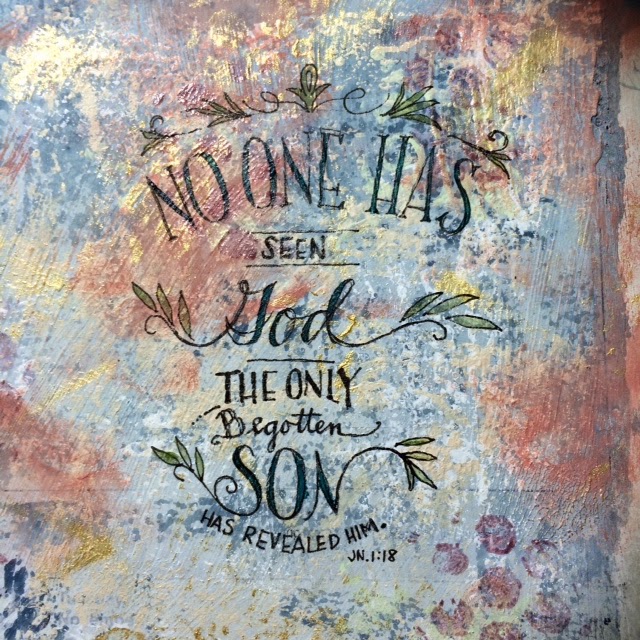 NO ONE HAS
SEEN
God
THE ONLY
Begotten
SON
HAS REVEALED HIM.
JN.1:18